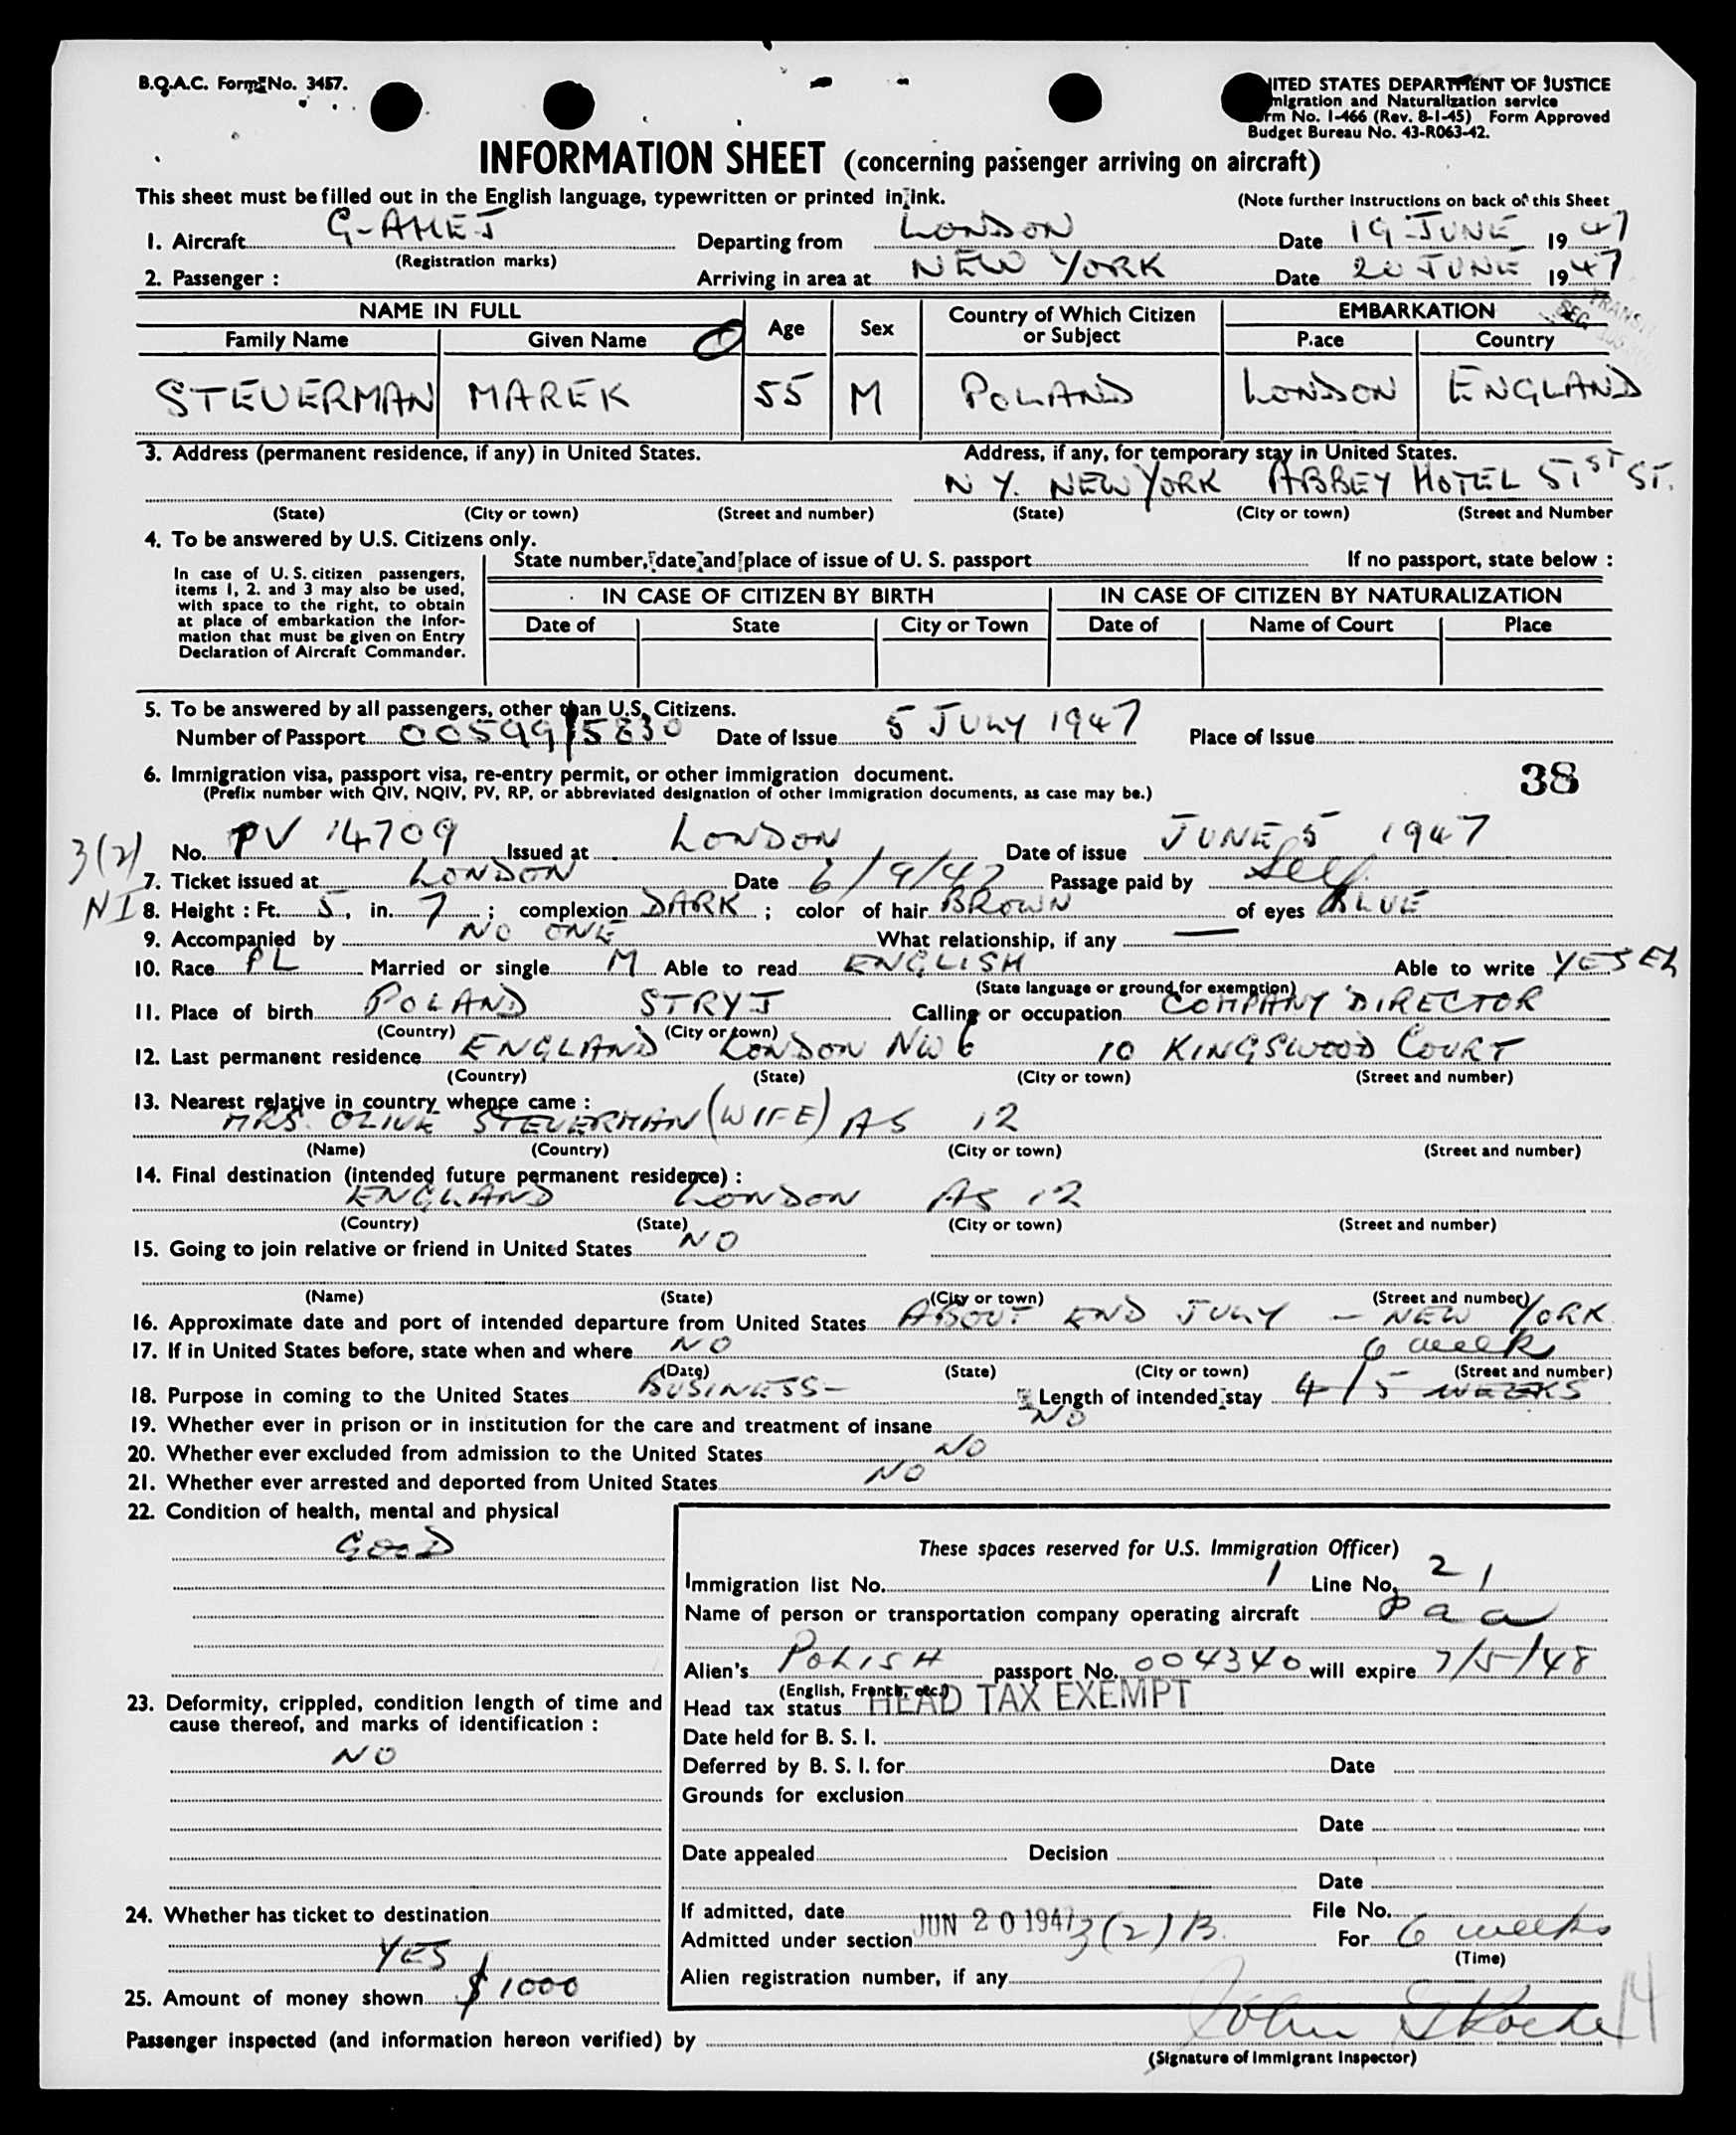 B.O.A.C. Form No. 3457.
UNITED STATES DEPARTMENT OF JUSTICE
Immigration and Naturalization service
Form No. I-466 (Rev. 8-1-45) Form Approved
Budget Bureau No. 43-R063-42.
INFORMATION SHEET (concerning passenger arriving on aircraft)
This sheet must be filled out in the English language, typewritten or printed in ink. (Note further instructions on back of this Sheet
1. Aircraft G-AHEJ Departing from LONDON Date 19 JUNE 1947
(Registration marks)
2. Passenger : Arriving in area at NEW YORK Date 20 JUNE 1947
NAME IN FULL Age Sex Country of Which Citizen or Subject EMBARKATION
Family Name Given Name Place Country
STEUERMAN MAREK 55 M POLAND LONDON ENGLAND
3. Address (permanent residence, if any) in United States. Address, if any, for temporary stay in United States.
N Y. NEW YORK ABBEY HOTEL 51ST ST.
(State) (City or town) (Street and number) (State) (City or town) (Street and Number
4. To be answered by U.S. Citizens only.
State number, date and place of issue of U. S. passport If no passport, state below :
In case of U. S. citizen passengers,
items 1, 2. and 3 may also be used,
with space to the right, to obtain
at place of embarkation the infor-
mation that must be given on Entry
Declaration of Aircraft Commander.
IN CASE OF CITIZEN BY BIRTH IN CASE OF CITIZEN BY NATURALIZATION
Date of State City or Town Date of Name of Court Place
5. To be answered by all passengers, other than U.S. Citizens.
Number of Passport 00599/5830 Date of Issue 5 JULY 1947 Place of Issue
6. Immigration visa, passport visa, re-entry permit, or other immigration document.
(Prefix number with QIV, NQIV, PV, RP, or abbreviated designation of other immigration documents, as case may be.)
38
3(2)
NI
No. PV 14709 Issued at LONDON Date of issue JUNE 5 1947
7. Ticket issued at LONDON Date 6/9/47 Passage paid by Self
8. Height : Ft. 5, in. 7 ; complexion DARK ; color of hair BROWN of eyes BLUE
9. Accompanied by NO ONE What relationship, if any —
10. Race PL Married or single M Able to read ENGLISH Able to write YES
(State language or ground for exemption)
11. Place of birth POLAND STRYJ Calling or occupation COMPANY DIRECTOR
(Country) (City or town)
12. Last permanent residence ENGLAND LONDON NW6 10 KINGSWOOD COURT
(Country) (State) (City or town) (Street and number)
13. Nearest relative in country whence came :
MRS. OLIVE STEUERMAN (WIFE) AS 12
(Name) (Country) (City or town) (Street and number)
14. Final destination (intended future permanent residence) :
ENGLAND LONDON AS 12
(Country) (State) (City or town) (Street and number)
15. Going to join relative or friend in United States NO
(Name) (State) (City or town) (Street and number)
16. Approximate date and port of intended departure from United States ABOUT END JULY - NEW YORK
17. If in United States before, state when and where NO
(Date) (State) (City or town) (Street and number)
6 week
18. Purpose in coming to the United States BUSINESS- Length of intended stay 4/5 WEEKS
19. Whether ever in prison or in institution for the care and treatment of insane NO
20. Whether ever excluded from admission to the United States NO
21. Whether ever arrested and deported from United States NO
22. Condition of health, mental and physical
GOOD
These spaces reserved for U.S. Immigration Officer)
Immigration list No. 1 Line No. 21
Name of person or transportation company operating aircraft P a a
Alien's POLISH passport No. 004340 will expire 7/5/48
(English, French, etc.)
Head tax status HEAD TAX EXEMPT
23. Deformity, crippled, condition length of time and
cause thereof, and marks of identification :
NO
Date held for B. S. I.
Deferred by B. S. I. for Date
Grounds for exclusion
Date
Date appealed Decision
Date
24. Whether has ticket to destination
YES
If admitted, date JUN 20 1947 File No.
Admitted under section 3(2)B. For 6 weeks
(Time)
Alien registration number, if any
25. Amount of money shown $1000
Passenger inspected (and information hereon verified) by John
(Signature of Immigrant Inspector)